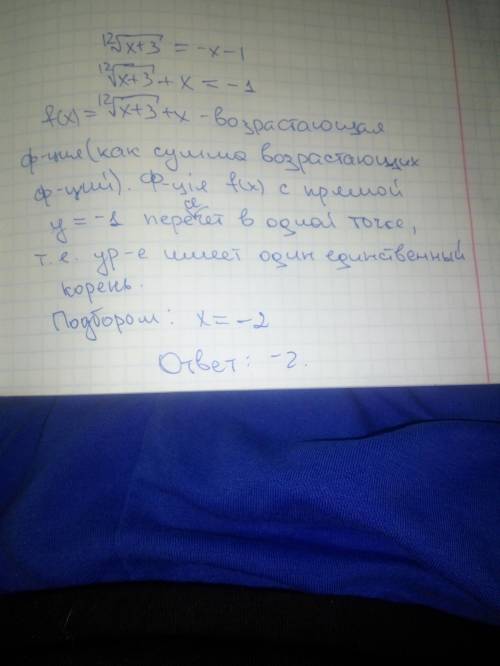 ¹²√(x+3) = -x-1
¹²√(x+3) + x = -1
f(x) = ¹²√(x+3) + x - возрастающая
ф-ция (как сумма возрастающих
ф-ций). Ф-ція f(x) с прямой
y = -1 пересечет в одной точке,
т.е. ур-е имеет один единственный
корень.
Подбором: x = -2
Ответ: -2.